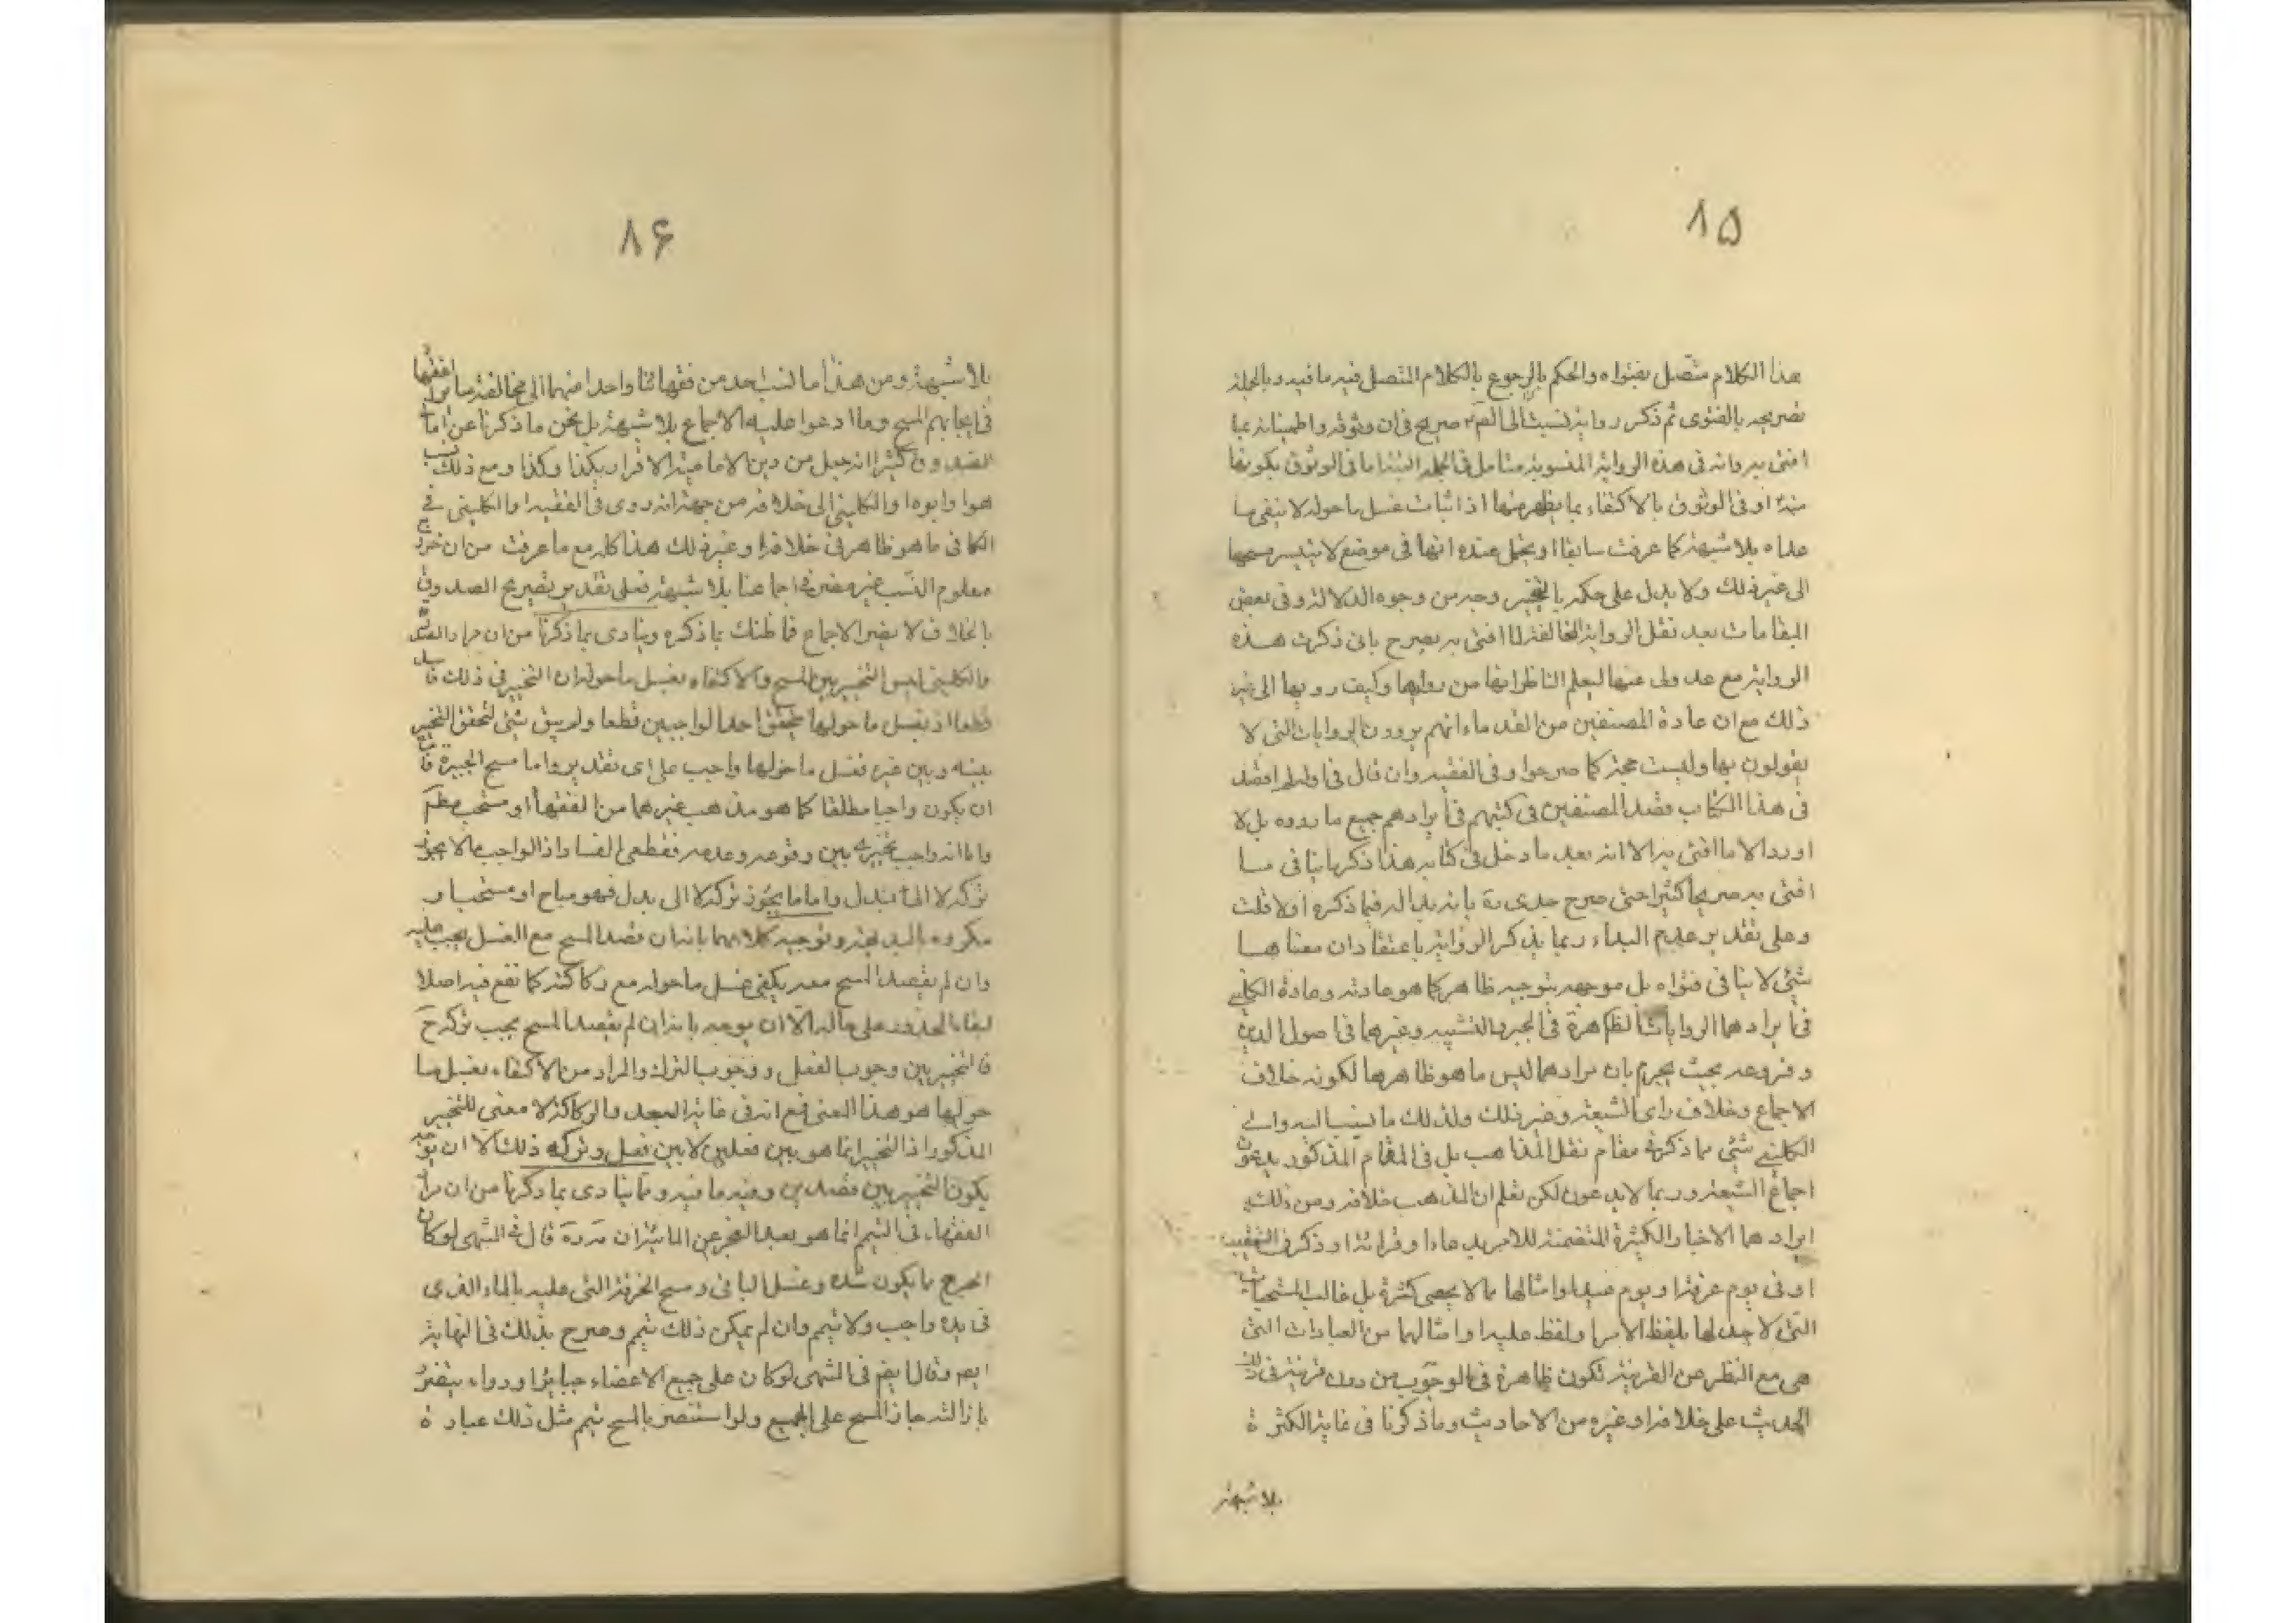 ۸۵
هذا الكلام متصل بفتواه والحكم بالرجوع بالكلام المتصل فيه ما فيه وبالجملة
تصريحه بالفتوى ثم ذكر رواية نسبت الى صريح فى ان وثوقه واطمينانه عبا
افتى به وانه فى هذه الرواية المنسوبة متامل فى الجملة البتة اما فى الوثوق بكونها
منه او فى الوثوق بالاكتفاء بما يظهر منها اذ اثبات غسل ما حوله لا ينفى ما
علاه بلا شبهة كما عرفت سابقا او يحتمل عنده انها فى موضع لا يتيسر مسحها
الى غير ذلك ولا يدل على حكمه بالتخيير وجه من وجوه الدلالة وفى بعض
المقامات بعد نقل الرواية المخالفة لما افتى به يصرح بانى ذكرت هذه
الرواية مع عدولى عنها ليعلم الناظر انها من رواها وكيف رويها الى غير
ذلك مع ان عادة المصنفين من القدماء انهم يروون الروايات التى لا
يقولون بها وليست حجة كما صرحوا وفى الفقيه وان قال فى اوله لم اقصد
فى هذا الكتاب قصد المصنفين فى كتبهم فى ايرادهم جميع ما رووه بل لا
اورد الا ما افتى به الا انه بعد ما دخل فى كتابه هذا ذكر ما ينافى ما
افتى به صريحا كثيرا حتى صرح جدى ره بانه بدا له فيما ذكره اولا قلت
وعلى تقدير عدم البداء ربما يذكر الرواية باعتقاد ان معناها
شئ لا ينافى فتواه بل موجهه بتوجيه ظاهر كما هو عادته وعادة الكلينى
فى ايرادهما الروايات الظاهرة فى الجبر والتشبيه وغيرهما فى اصول الدين
وفروعه بحيث يجزم بان مرادهما ليس ما هو ظاهرها لكونه خلاف
الاجماع وخلاف راى الشيعة وغير ذلك ولذلك ما ينسب اليه والى
الكلينى شئ مما ذكر فى مقام نقل المذاهب بل فى المقام المذكور يدعون
اجماع الشيعة وربما لا يدعون لكن نعلم ان المذهب خلافه ومن ذلك
ايرادهما الاخبار الكثيرة المتضمنة للامر بدعاء او قراءة او ذكر فى التعقيب
او فى يوم عرفة او يوم عيد او امثالها مما لا يحصى كثرة بل غالب المستحبات
التى لا جدلها بلفظ الامر او لفظ عليه او امثالهما من العبارات التى
هى مع النظر عن القرينة تكون ظاهرة فى الوجوب من دون قرينة فى ذلك
الحديث على خلافه او غيره من الاحاديث وما ذكرنا فى غاية الكثرة
بلا شبهة
۸۶
بلا شبهة ومن هذا ما نسب احد من فقهائنا واحدا منهما الى مخالفة سائر الفقهاء
فى ايجابهم المسح وما ادعوا عليه الاجماع بلا شبهة بل نحن ما ذكرنا عن امالى
الصدوق كثيرا انه جعل من دين الامامية الاقرار بكذا وكذا ومع ذلك نسب
هو وابوه والكلينى الى خلافه من جهة انه روى فى الفقيه والكلينى فى
الكافى ما هو ظاهر فى خلافه وغير ذلك هذا كله مع ما عرفت من ان خروج
معلوم النسب غير مضر فى اجماعنا بلا شبهة فعلى تقدير تصريح الصدوق
بالخلاف لا يضر الاجماع فما ظنك بما ذكره وينادى بما ذكرنا من ان مراد الصدوق
والكلينى ليس التخيير بين المسح والاكتفاء بغسل ما حوله ان التخيير فى ذلك
قطعا اذ بغسل ما حولها يتحقق احد الواجبين قطعا ولم يبق شئ لتحقق التخيير
بينه وبين غيره فغسل ما حولها واجب على اى تقدير واما مسح الجبيرة فاما
ان يكون واجبا مطلقا كما هو مذهب غيرهما من الفقهاء او مستحب
واما انه واجب تخييرى بين وقوعه وعدمه فقطعى الفساد اذ الواجب ما لا يجوز
تركه لا الى بدل واما ما يجوز تركه لا الى بدل فهو مباح او مستحب او
مكروه بالبديهة وتوجيه كلامهما بانه ان قصد المسح مع الغسل يجب عليه
وان لم يقصد المسح معه يكفى غسل ما حوله مع ركاكته كما تقع فيه اصلا
لبقاء المحذور على حاله الا ان يوجه بانه ان لم يقصد المسح يجب تركه ح
فالتخيير بين وجوب الفعل ووجوب الترك والمراد من الاكتفاء بغسل ما
حولها هو هذا المعنى فمع انه فى غاية البعد والركاكة لا معنى للتخيير
المذكور اذ التخيير انما هو بين فعلين لا بين فعل وتركه ذلك الا ان يوجه
يكون التخيير بين قصدين وفيه ما فيه ومما ينادى بما ذكرنا من ان مراد
الفقهاء فى التيمم انما هو بعد العجز عن المائية ان قال فى المنتهى لو كان
الجرح مما يكون شده وغسل الباقى ومسح الخرقة التى عليه بالماء الذى
فى يده واجب ولا تيمم وان لم يمكن ذلك تيمم وصرح بذلك فى النهاية
ايضا وقال ايضا فى المنتهى لو كان على جميع الاعضاء جبائر او دواء يتضرر
بازالته جاز المسح على الجميع ولو استضر بالمسح تيمم مثل ذلك عبارة